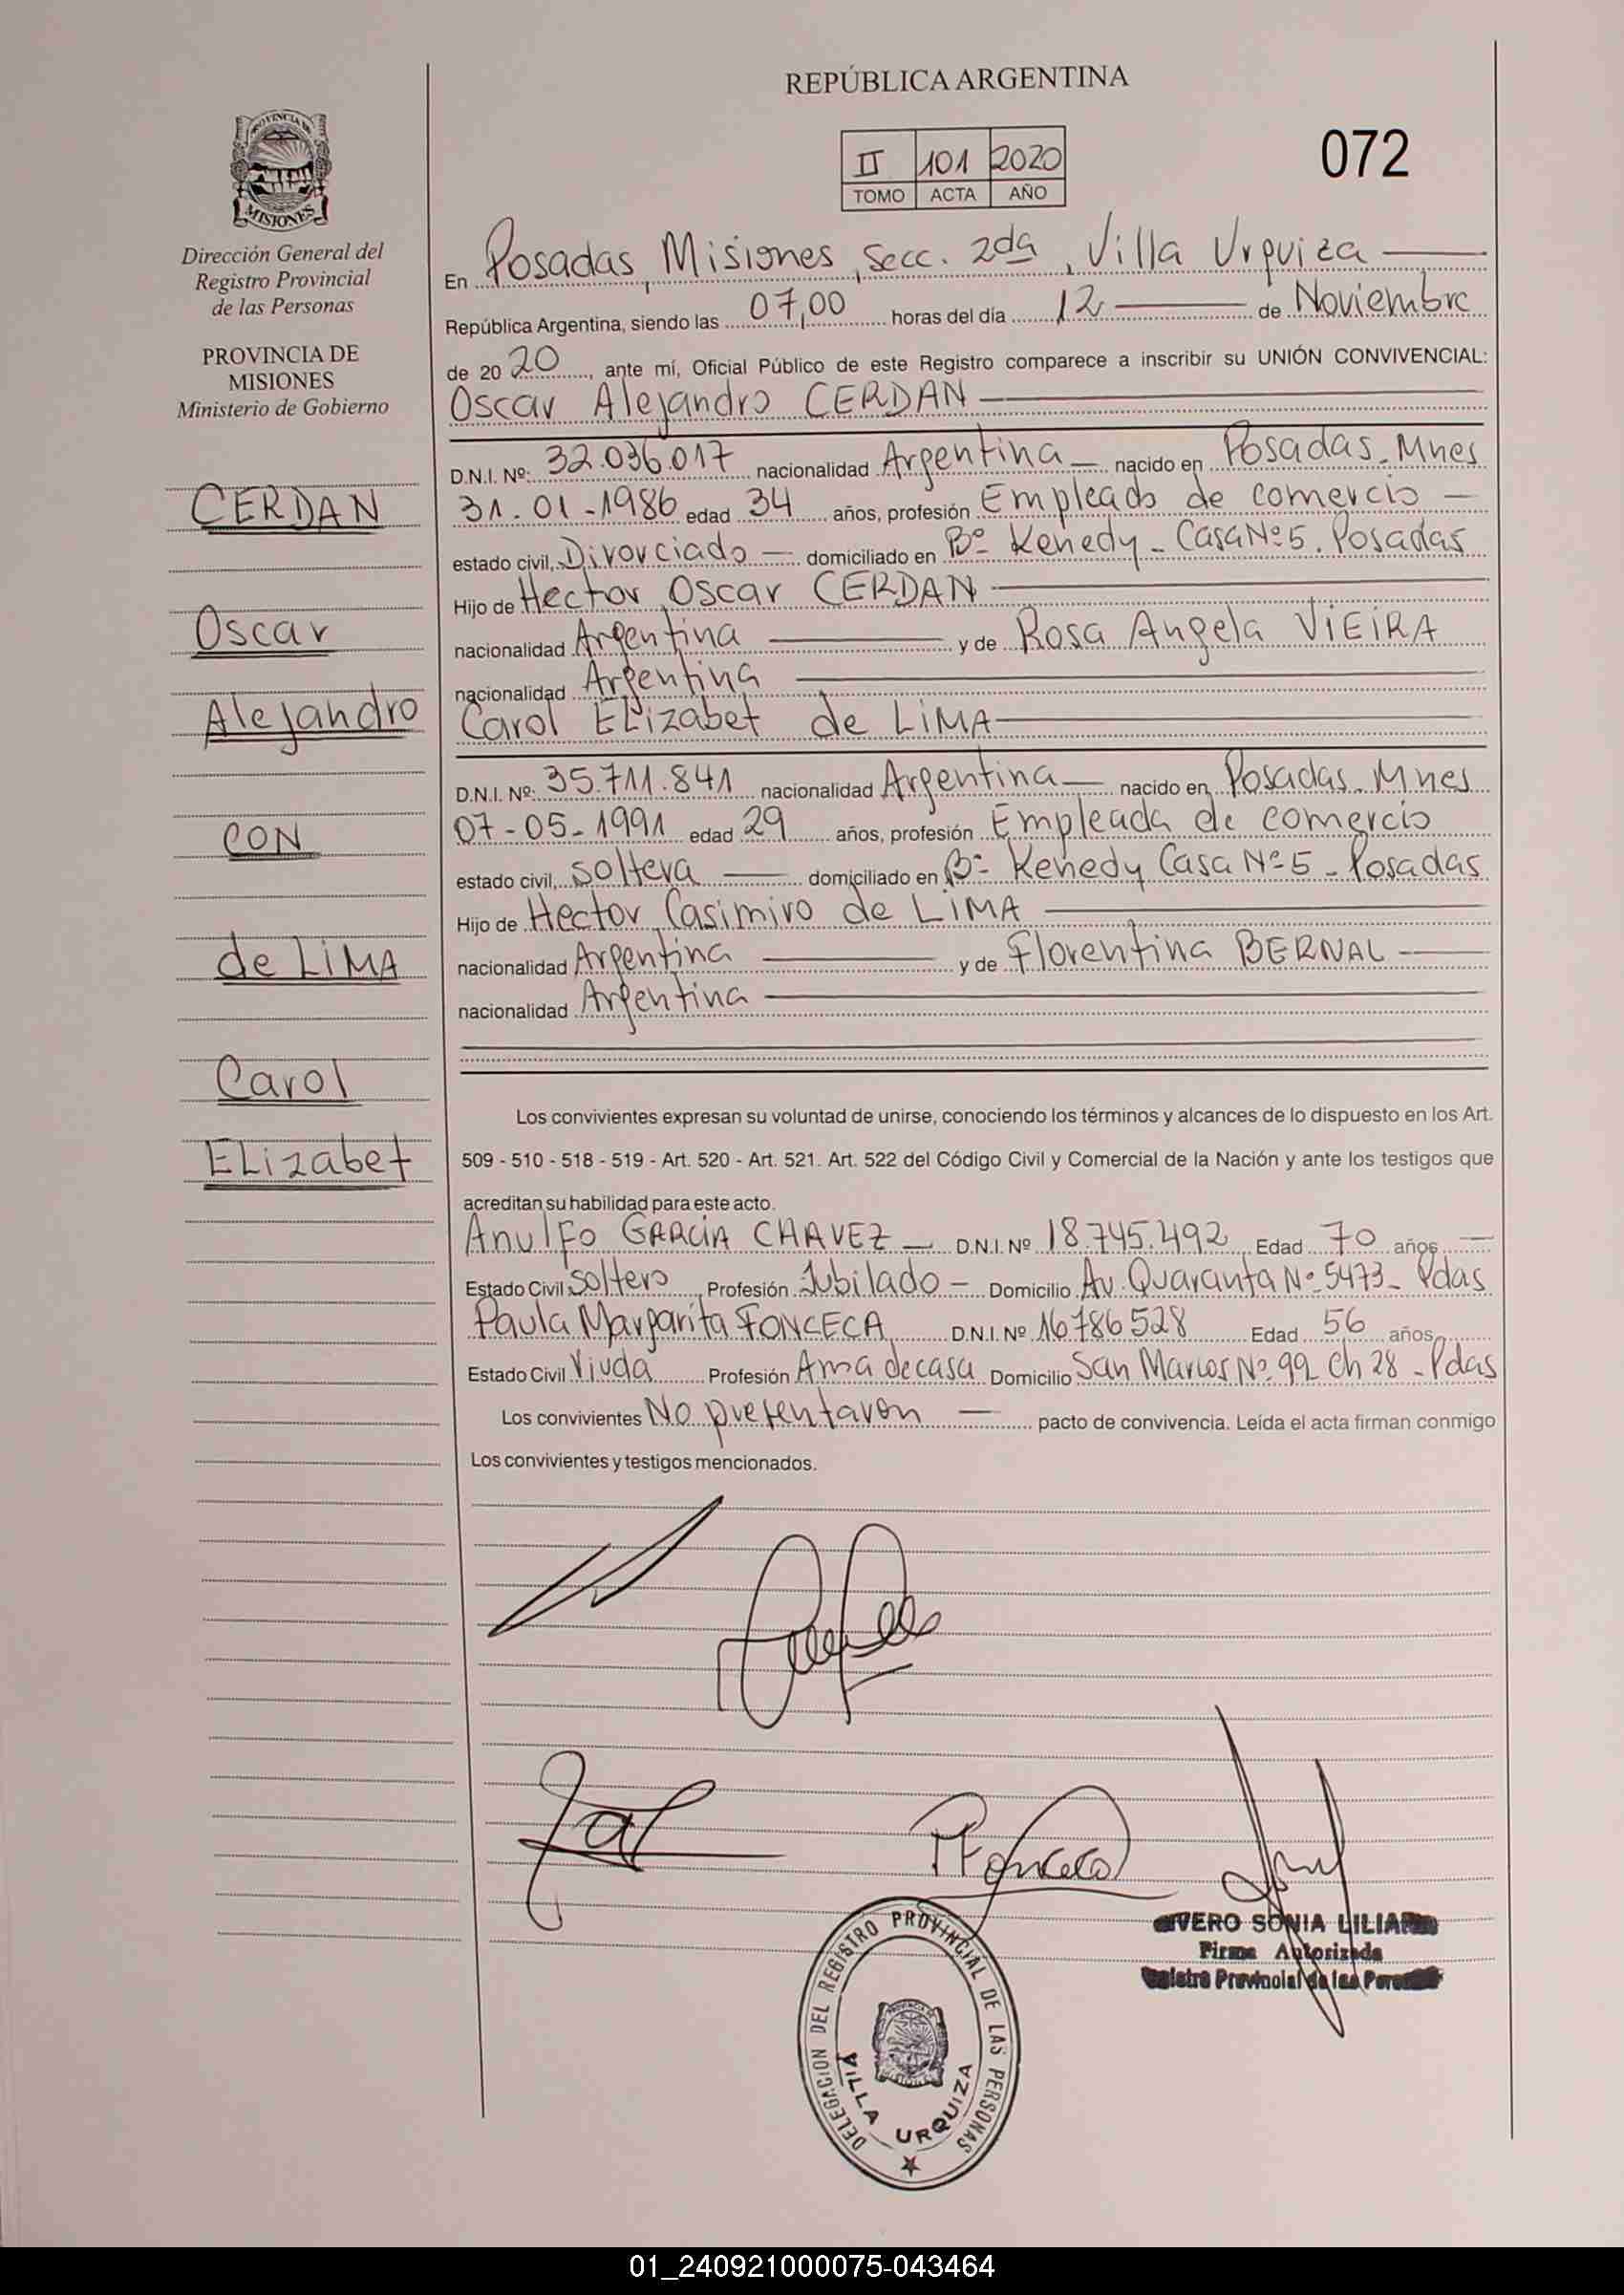 REPÚBLICA ARGENTINA
072
II 101 2020
TOMO ACTA AÑO
PROVINCIA DE
MISIONES
Dirección General del
Registro Provincial
de las Personas
PROVINCIA DE
MISIONES
Ministerio de Gobierno
CERDAN
Oscar
Alejandro
CON
de LiMA
Carol
ELizabet
En Posadas, Misiones, secc. 2da, Villa Urquiza
República Argentina, siendo las 07,00 horas del día 12 de Noviembre
de 2020, ante mí, Oficial Público de este Registro comparece a inscribir su UNIÓN CONVIVENCIAL:
Oscar Alejandro CERDAN
D.N.I. Nº: 32.036.017 nacionalidad Argentina nacido en Posadas - Mnes
31-01-1986 edad 34 años, profesión Empleado de comercio
estado civil, Divorciado domiciliado en Bº Kenedy - Casa Nº 5. Posadas
Hijo de Hector Oscar CERDAN
nacionalidad Argentina y de Rosa Angela ViEiRA
nacionalidad Argentina
Carol ELizabet de LiMA
D.N.I. Nº: 35.711.841 nacionalidad Argentina nacido en Posadas - Mnes
07-05-1991 edad 29 años, profesión Empleada de comercio
estado civil, soltera domiciliado en Bº Kenedy Casa Nº 5 - Posadas
Hijo de Hector Casimiro de LiMA
nacionalidad Argentina y de Florentina BERNAL
nacionalidad Argentina
Los convivientes expresan su voluntad de unirse, conociendo los términos y alcances de lo dispuesto en los Art.
509 - 510 - 518 - 519 - Art. 520 - Art. 521. Art. 522 del Código Civil y Comercial de la Nación y ante los testigos que
acreditan su habilidad para este acto.
Anulfo GARCiA CHAVEZ D.N.I. Nº 18.745.492 Edad 70 años
Estado Civil soltero Profesión Jubilado Domicilio Av. Quaranta Nº 5473 - Pdas
Paula Margarita FONCECA D.N.I. Nº 16786528 Edad 56 años
Estado Civil Viuda Profesión Ama de casa Domicilio San Marcos Nº 99 Ch 28 - Pdas
Los convivientes No presentaron pacto de convivencia. Leída el acta firman conmigo
Los convivientes y testigos mencionados.
PFonceca
VERO SONIA LILIANA
Firma Autorizada
Registro Provincial de las Personas
DELEGACION DEL REGISTRO PROVINCIAL DE LAS PERSONAS
VILLA URQUIZA
01_240921000075-043464